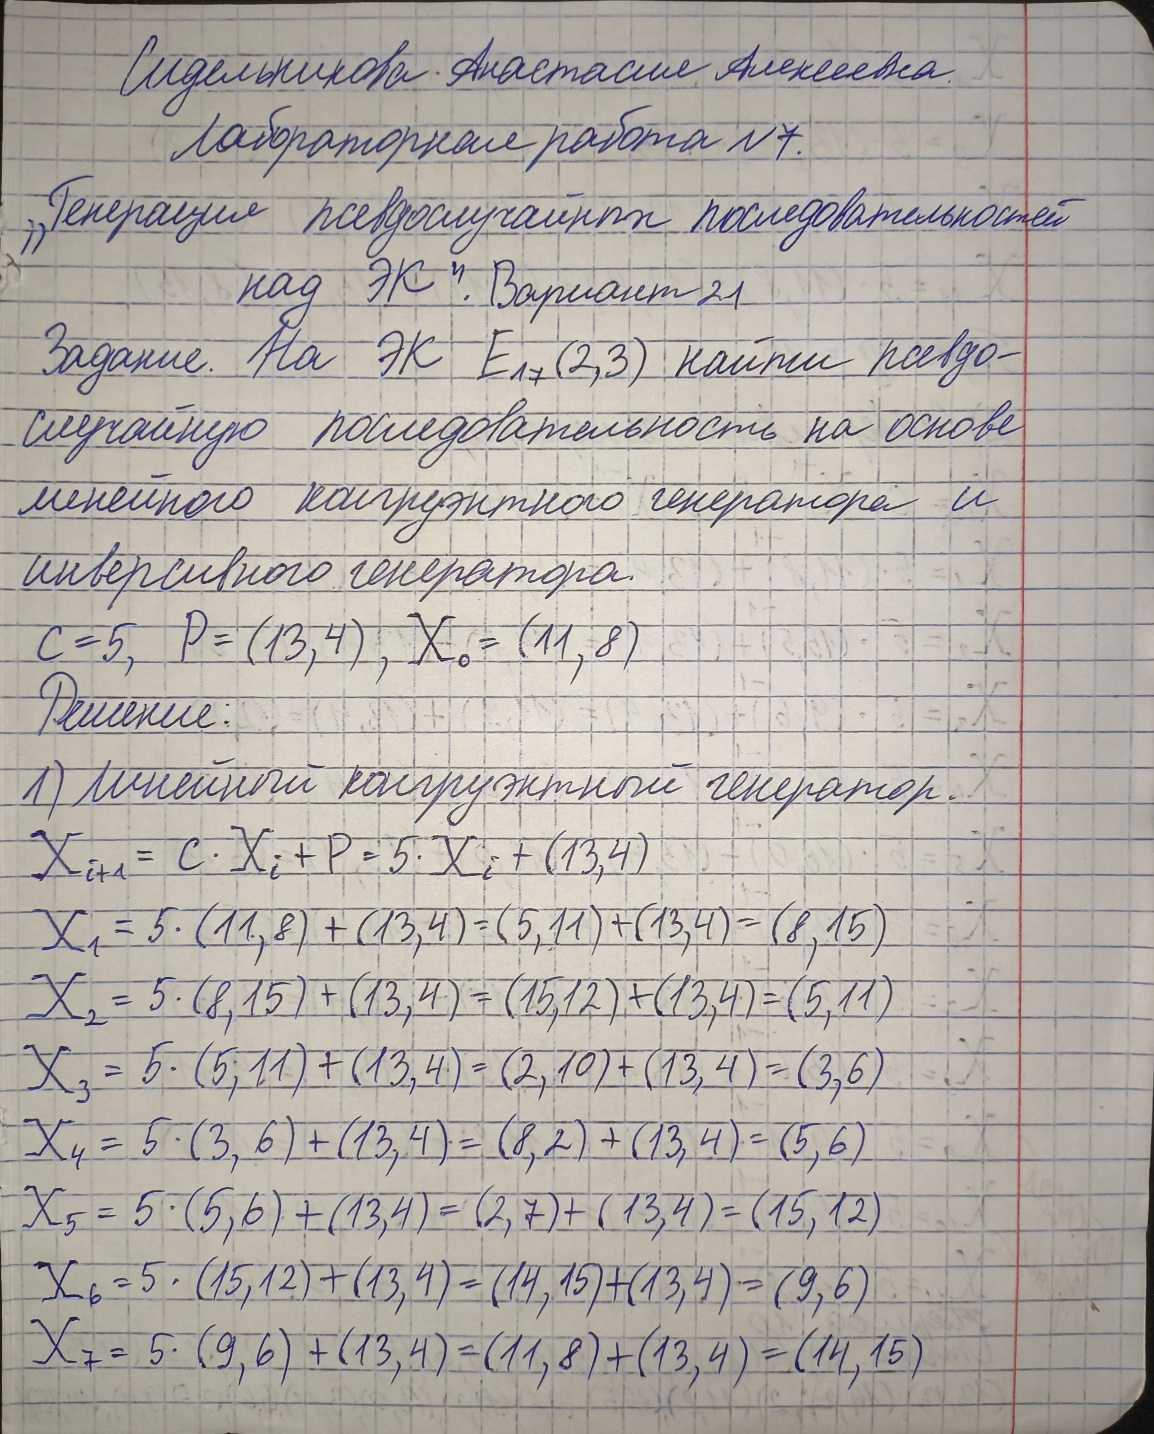 Сидельникова Анастасия Алексеевна.
Лабораторная работа N7.
„Генерация псевдослучайных последовательностей
над ЭК". Вариант 21
Задание. На ЭК E₁₇(2,3) найти псевдо-
случайную последовательность на основе
линейного конгруэнтного генератора и
инверсивного генератора.
c=5, P=(13,4), X₀=(11,8)
Решение:
1) Линейный конгруэнтный генератор.
Xᵢ₊₁ = c·Xᵢ+P=5·Xᵢ+(13,4)
X₁ = 5·(11,8)+(13,4)=(5,11)+(13,4)=(8,15)
X₂ = 5·(8,15)+(13,4)=(15,12)+(13,4)=(5,11)
X₃ = 5·(5,11)+(13,4)=(2,10)+(13,4)=(3,6)
X₄ = 5·(3,6)+(13,4)=(8,2)+(13,4)=(5,6)
X₅ = 5·(5,6)+(13,4)=(2,7)+(13,4)=(15,12)
X₆ = 5·(15,12)+(13,4)=(14,15)+(13,4)=(9,6)
X₇ = 5·(9,6)+(13,4)=(11,8)+(13,4)=(14,15)